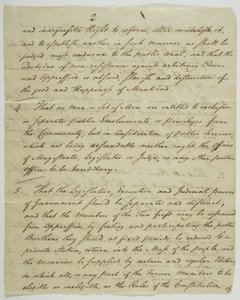 2
and indefeasible Right to reform, alter or abolish it,
and to establish another, in such manner as shall be
judged most conducive to the public Weal; and that the
Doctrine of non-resistance against arbitrary Power
and Oppression is absurd, slavish and destructive of
the good and Happiness of Mankind.
4. That no man or Set of Men are entitled to exclusive
or separate public Emoluments or Privileges from
the Community, but in Consideration of public Services;
which not being descendible neither ought the Offices
of Magistrate, Legislator or Judge, or any other public
Office to be hereditary.
5. That the Legislative, Executive and Judicial powers
of Government should be separate and distinct,
and that the Members of the Two first may be restrained
from Oppression by feeling and participating the public
Burthens, they should at fixed periods be reduced to a
private Station, return into the Mass of the people, and
the Vacancies be supplied by certain and regular Elections
in which all, or any part of the Former Members to be
eligible or ineligible, as the Rules of the Constitution of